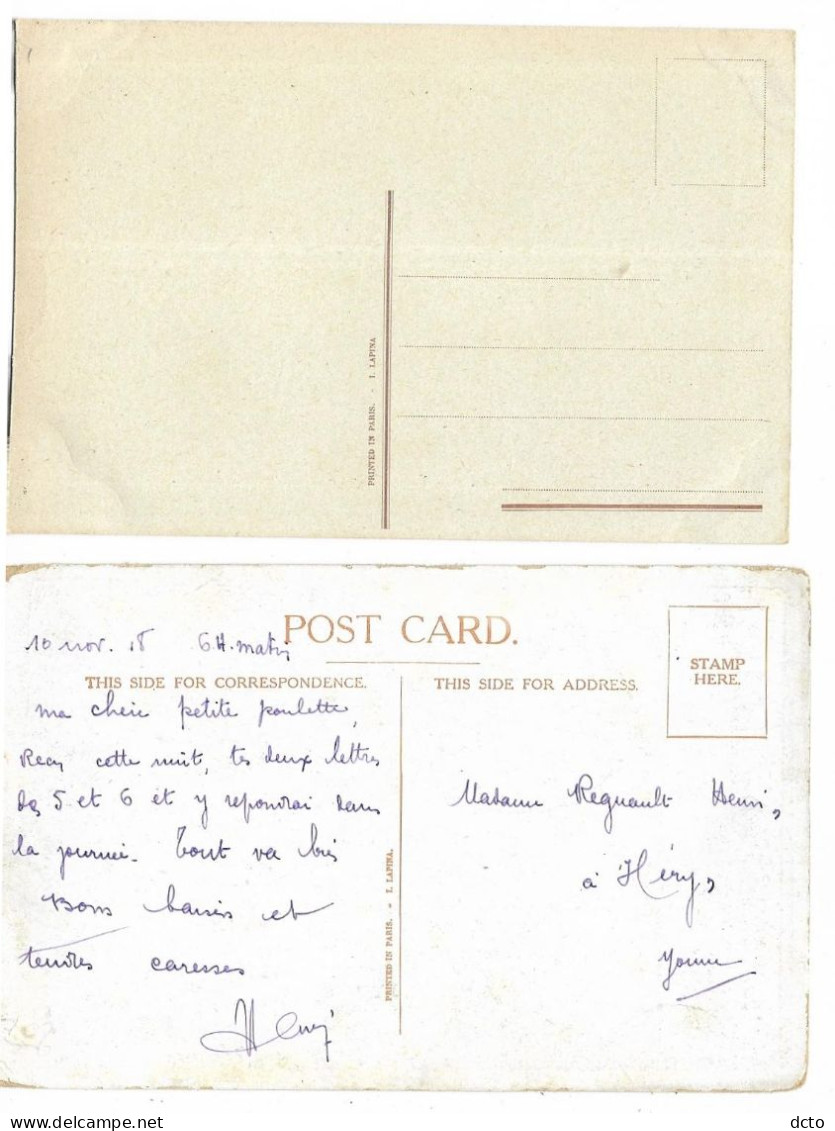 PRINTED IN PARIS. - I. LAPINA
POST CARD.
10 nov. 18 6 H. matin
THIS SIDE FOR CORRESPONDENCE.
THIS SIDE FOR ADDRESS.
STAMP
HERE.
ma cherie petite poulette,
Reçu cette nuit, tes deux lettres
des 5 et 6 et y repondrai dans
la journée. Tout va bien
Bons baisers et
tendres caresses
Henri
PRINTED IN PARIS. - I. LAPINA.
Madame Regnault Henri,
à Héry,
Yonne
dcto